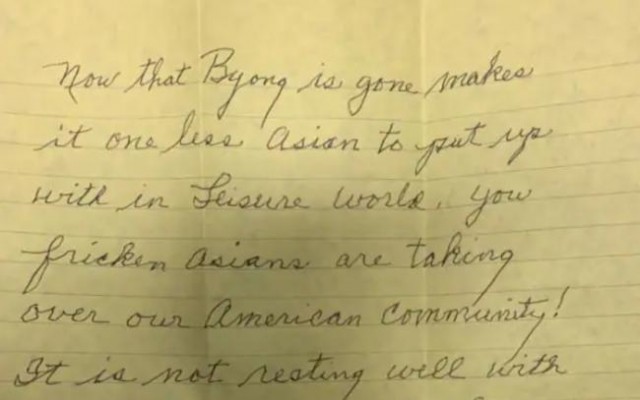 Now that Byong is gone makes
it one less asian to put up
with in Leisure World. You
fricken asians are taking
over our American community!
It is not resting well with